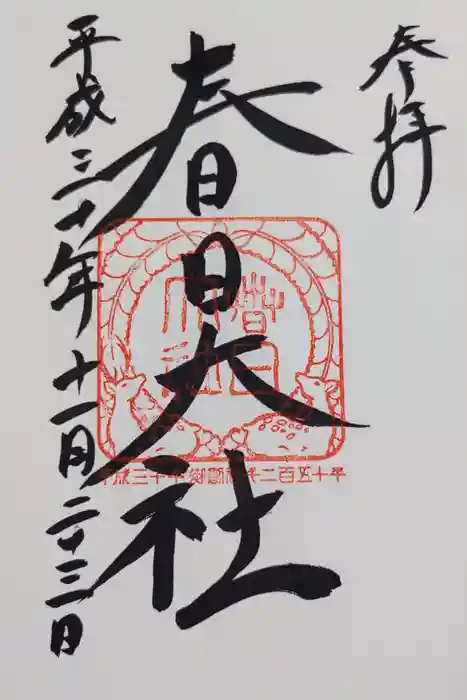 奉拝
春日大社
平成三十年十一月二十三日
春日
大社
平成三十年御創建千二百五十年